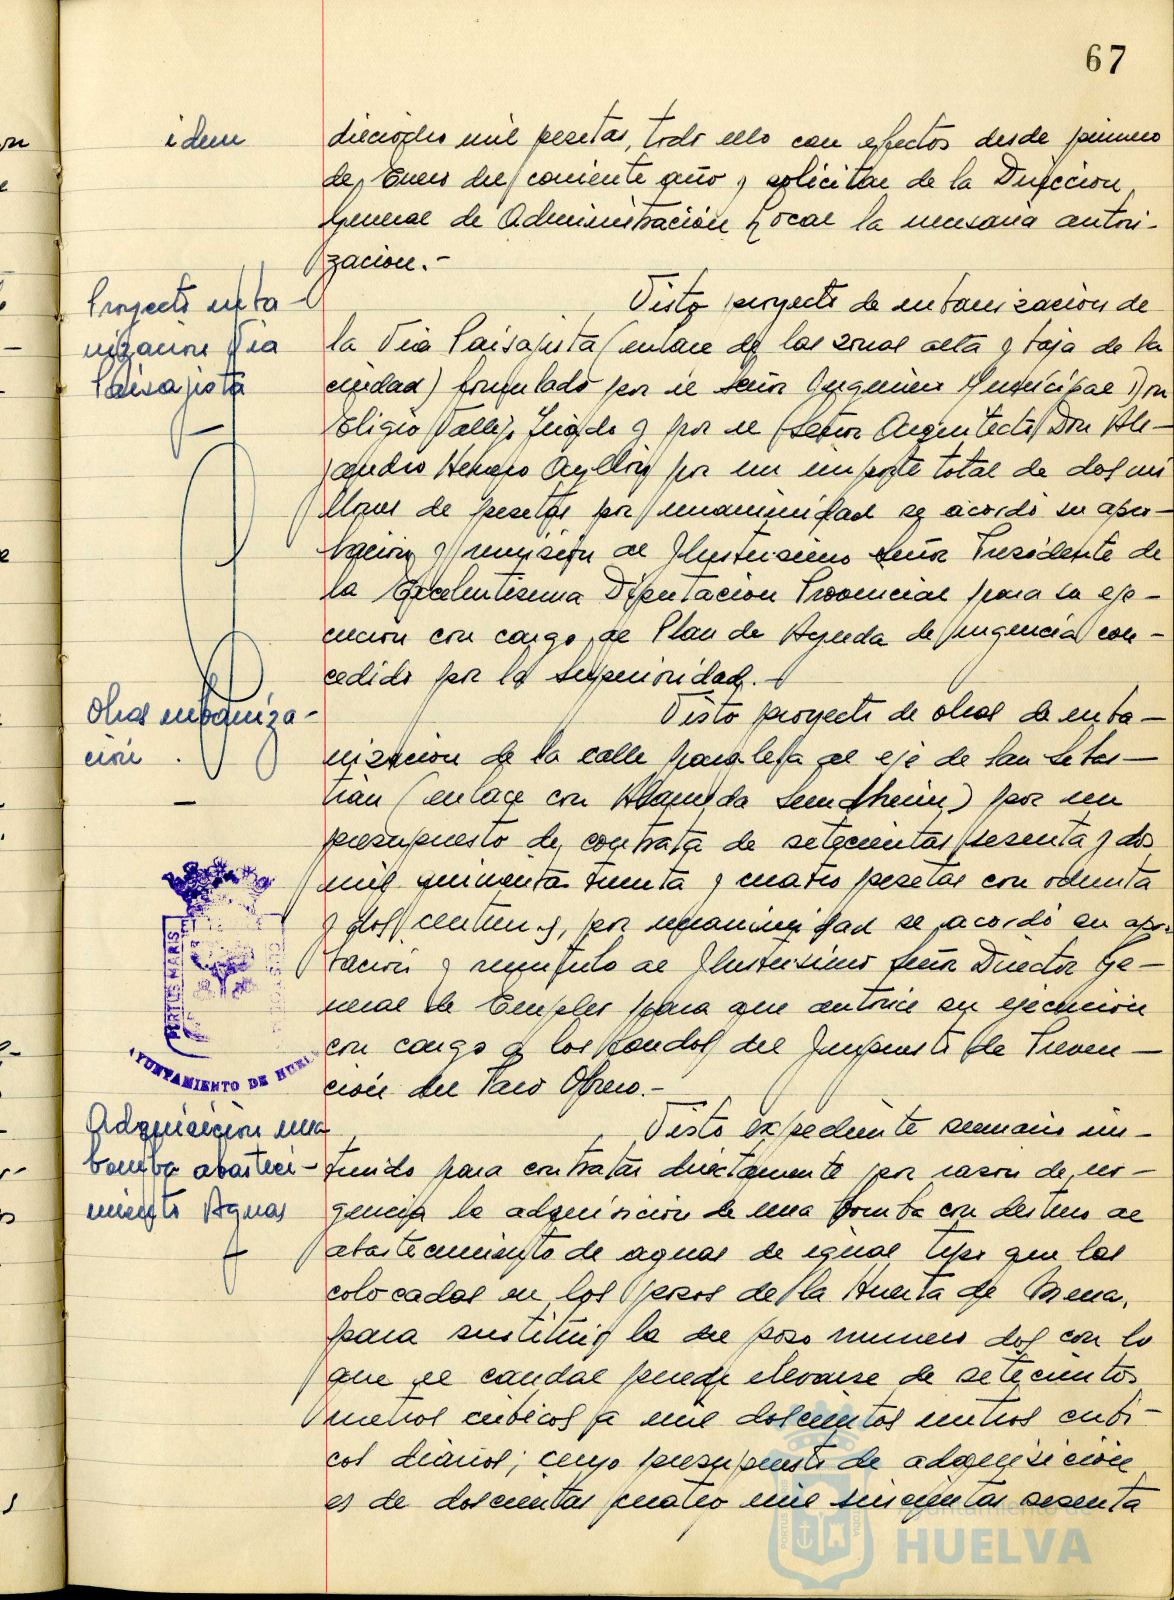 67
idem
dieciocho mil pesetas, todo ello con efectos desde primero
de Enero del corriente año y solicitar de la Direccion
General de Administración Local la necesaria autori-
zacion.-
Proyecto urba-
nizacion Via
Paisajista
Visto proyecto de urbanizacion de
la Via Paisajista (enlace de las zonas alta y baja de la
ciudad) formulado por el Señor Ingeniero Municipal Don
Eligio Vallejo y por el Señor Arquitecto Don Ale-
jandro Herrero Ayllón por un importe total de dos mi
llones de pesetas por unanimidad se acordó su apro-
bación y remisión al Ilustrisimo Señor Presidente de
la Excelentisima Diputacion Provincial para su eje-
cucion con cargo al Plan de Ayuda de urgencia con-
cedido por la Superioridad.-
Obras urbaniza-
ción.
Visto proyecto de obras de urba-
nizacion de la calle paralela al eje de San Sebas-
tián (enlace con Alameda Sundheim) por un
presupuesto de contrata de setecientas sesenta y dos
mil quinientas treinta y cuatro pesetas con ochenta
y dos centimos, por unanimidad se acordó su apro-
bación y remitirlo al Ilustrisimo Señor Director Ge-
neral de Empleo para que autorice su ejecución
con cargo a los fondos del Impuesto de Preven-
ción del Paro Obrero.-
PORTUS MARIS
AYUNTAMIENTO DE HUELVA
Adquisicion una
bomba abasteci-
miento Aguas
Visto expediente sumario ins-
truido para contratar directamente por razon de ur-
gencia la adquisicion de una bomba con destino al
abastecimiento de aguas de igual tipo que las
colocadas en los pozos de la Huerta de Mena,
para sustituir la del pozo numero dos con lo
que el caudal puede elevarse de setecientos
metros cubicos a mil doscientos metros cubi-
cos diarios; cuyo presupuesto de adquisicion
es de doscientas cuatro mil sesenta
Ayuntamiento de
HUELVA